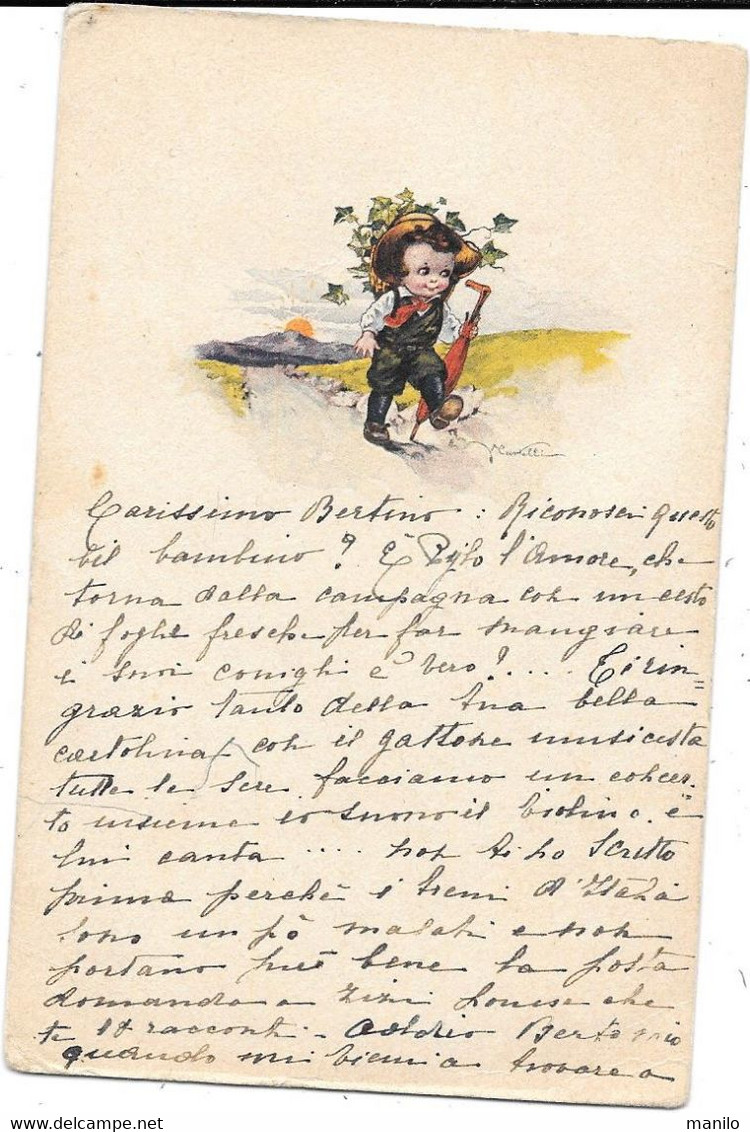 Castelli
Carissimo Bertino : Riconosci questo
bil bambino ? È l'Amore, che
torna dalla campagna con un cesto
di foghe fresche per far mangiare
i suoi conighi è vero ? .... Ti rin=
grazio tanto della tua bella
cartolina con il gattone musicista
tutte le sere facciamo un concer=
to insieme io suono il violino. e
lui canta .... non ti ho scritto
prima perchè i treni d'Italia
sono un pò malati e non
portano più bene la posta
domanda a Zizi Louise che
te lo racconti - Addio Berto mio
quando mi vieni a trovare a
manilo